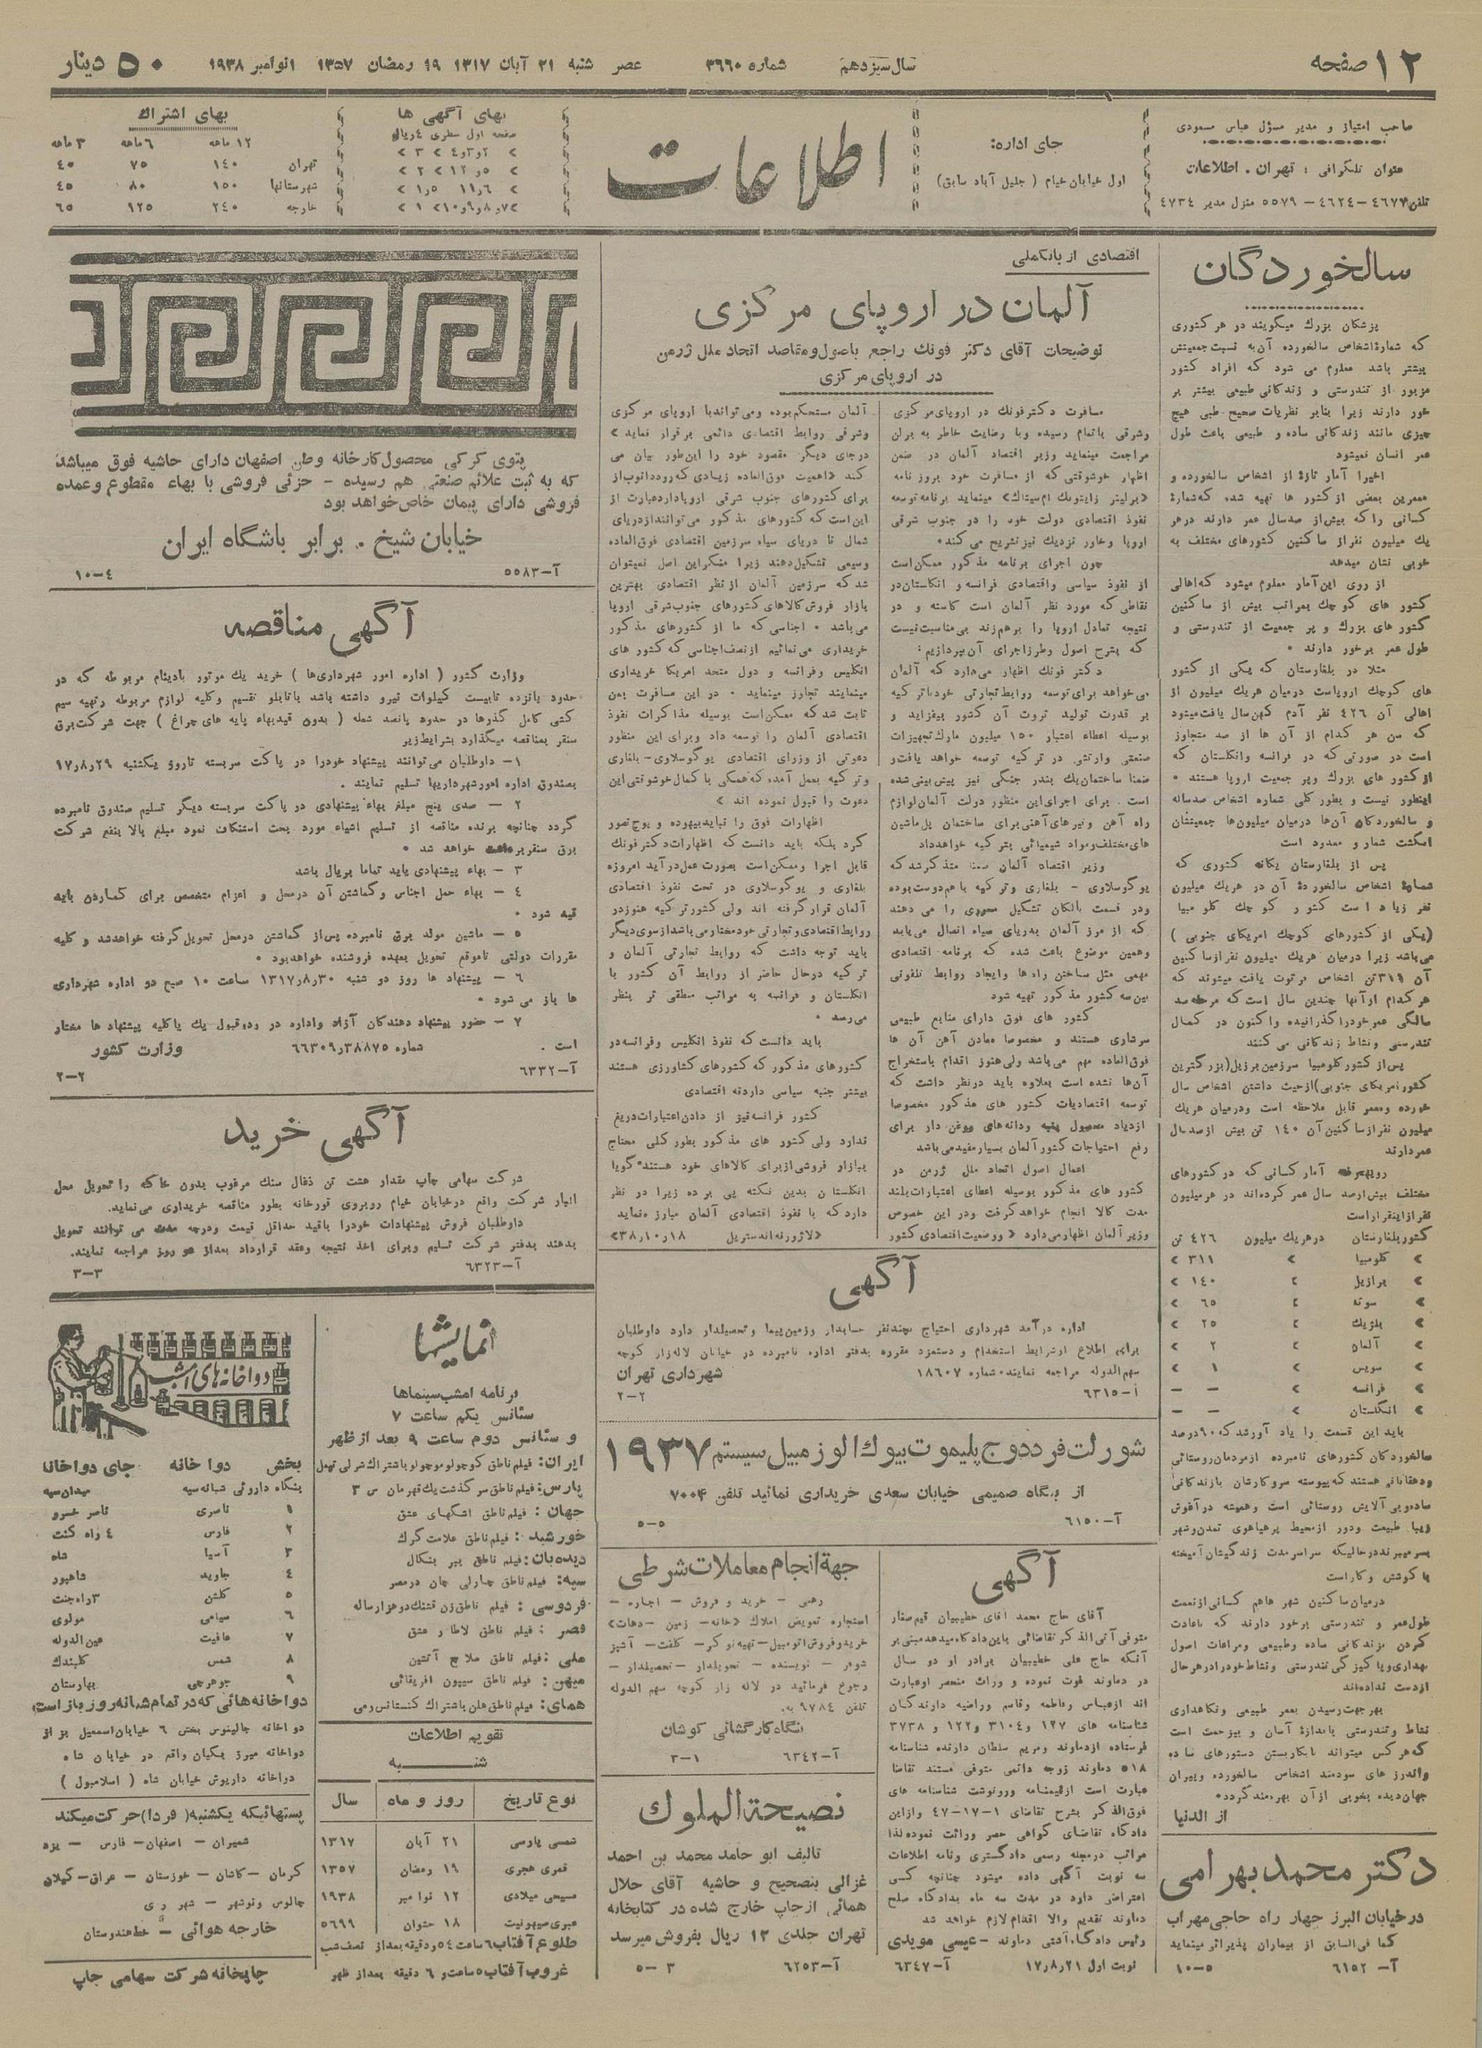 ۱۲ صفحه
سال سیزدهم
شماره ۳۶۶۰
عصر شنبه ۲۱ آبان ۱۳۱۷ ۱۹ رمضان ۱۳۵۷ نوامبر ۱۹۳۸
۵۰ دینار
صاحب امتیاز و مدیر مسؤل عباس مسعودی
عنوان تلگرافی : تهران . اطلاعات
تلفن ۴۶۷۷ - ۴۶۲۴ - ۵۵۷۹ منزل مدیر ۴۷۳۴
جای اداره:
اول خیابان خیام ( جلیل آباد سابق)
اطلاعات
بهای آگهی ها
صفحه اول سطری ۴ ریال
بهای اشتراك
۱۲ ماهه ۶ ماهه ۳ ماهه
تهران ۱۴۰ ۷۵ ۴۰
شهرستانها ۱۵۰ ۸۰ ۴۵
خارجه ۲۴۰ ۱۲۵ ۶۵
سالخوردگان
پزشکان بزرك میگویند در هر کشوری
که شمارۀ اشخاص سالخورده آن به نسبت جمعیتش
بیشتر باشد معلوم می شود که افراد کشور
مزبور از تندرستی و زندگانی طبیعی بیشتر بر
خور دارند زیرا بنابر نظریات صحیح طبی هیچ
چیزی مانند زندگانی ساده و طبیعی باعث طول
عمر انسان نمیشود
اخیرا آمار تازۀ از اشخاص سالخورده و
معمرین بعضی از کشور ها تهیه شده که شمارۀ
کسانی را که بیش از صد سال عمر دارند در هر
یك میلیون نفر از ساکنین کشورهای مختلف به
خوبی نشان میدهد
از روی این آمار معلوم میشود که اهالی
کشور های کوچك بمراتب بیش از ساکنین
کشور های بزرك و پر جمعیت از تندرستی و
طول عمر برخور دارند •
مثلا در بلغارستان که یکی از کشور
های کوچك اروپاست درمیان هریك میلیون از
اهالی آن ۴۲۶ نفر آدم کهن سال یافت میشود
که سن هر کدام از آن ها از صد متجاوز
است در صورتی که در فرانسه و انگلستان که
از کشور های بزرك و پر جمعیت اروپا هستند •
اینطور نیست و بطور کلی شماره اشخاص صد ساله
و سالخوردگان آن‌ها درمیان میلیون‌ها جمعیتشان
انگشت شمار و معدود است
پس از بلغارستان یگانه کشوری که
شمارۀ اشخاص سالخوردۀ آن در هریك میلیون
نفر زیاد است کشور کوچك کلومبیا
(یکی از کشورهای کوچك امریکای جنوبی )
می‌باشد زیرا درمیان هریك میلیون نفر از ساکنین
آن ۳۱۱ تن اشخاص فرتوت یافت میشوند که
هر کدام از آنها چندین سال است که مرحله صد
سالگی عمر خود را گذرانیده و اکنون در کمال
تندرستی و نشاط زندگانی می کنند
پس از کشور کلومبیا سرزمین برزیل (بزرگترین
کشور امریکای جنوبی) از حیث داشتن اشخاص سال
خورده و معمر قابل ملاحظه است و درمیان هریك
میلیون نفر از ساکنین آن ۱۴۰ تن بیش از صد سال
عمر دارند
رویهمرفته آمار کسانی که در کشورهای
مختلف بیش از صد سال عمر کرده‌اند در هر میلیون
نفر از اینقرار است
کشور بلغارستان در هریك میلیون ۴۲۶ تن
» کلومبیا » ۳۱۱ »
» برازیل » ۱۴۰ »
» سوئد » ۶۵ »
» بلژیك » ۲۵ »
» آلمان » ۲ »
» سویس » ۱ »
» فرانسه » - -
» انگلستان » - -
باید این قسمت را یاد آور شد که ۹۰ درصد
سالخوردگان کشورهای نامبرده از مردمان روستائی
و دهقانانی هستند که پیوسته سروکارشان با زندگانی
ساده و بی آلایش روستائی است و همیشه در آغوش
زیبا طبیعت و دور از محیط پرهیاهوی تمدن و شهر
بسر میبرند در حالیکه سراسر مدت زندگیشان آمیخته
با کوشش و کار است
درمیان ساکنین شهر ها هم کسانی از نعمت
طول عمر و تندرستی برخور دارند که باعادت
کردن بزندگانی ساده و طبیعی و مراعات اصول
بهداری و پاکیزگی تندرستی و نشاط خود را در هر حال
از دست نداده‌اند
بهر جهت رسیدن بعمر طبیعی و نگاهداری
نشاط و تندرستی باندازۀ آسان و بیزحمت است
که هر کس میتواند با بکاربستن دستورهای ساده
و اندرز های سودمند اشخاص سالخورده و پیران
جهان دیده بخوبی از آن بهره‌مند گردد •
از الدنیا
دکتر محمد بهرامی
در خیابان البرز چهار راه حاجی مهراب
کما فی السابق از بیماران پذیرائی مینماید
آ- ۶۱۵۲ ۱۰-۵
اقتصادی از بانك‌ملی
آلمان در اروپای مرکزی
توضیحات آقای دکتر فونك راجع باصول و مقاصد اتحاد ملل ژرمن
در اروپای مرکزی
مسافرت دکتر فونك در اروپای مرکزی
و شرقی باتمام رسیده و با رضایت خاطر به برلن
مراجعت مینماید وزیر اقتصاد آلمان در ضمن
اظهار خوشوقتی که از مسافرت خود بروزنامه
«برلینر زایتونك ام میتاك» مینماید برنامه توسعه
نفوذ اقتصادی دولت خود را در جنوب شرقی
اروپا و خاور نزدیك نیز تشریح می کند •
چون اجرای برنامه مذکور ممکن است
از نفوذ سیاسی و اقتصادی فرانسه و انگلستان در
نقاطی که مورد نظر آلمان است کاسته و در
نتیجه تعادل اروپا را برهم زند بی‌مناسبت نیست
که بشرح اصول و طرز اجرای آن بپردازیم :
دکتر فونك اظهار می‌دارد که آلمان
می‌خواهد برای توسعه روابط تجارتی خود با ترکیه
بر قدرت تولید ثروت آن کشور بیفزاید و
بوسیله اعطاء اعتبار ۱۵۰ میلیون مارك تجهیزات
صنعتی و ارتش در ترکیه توسعه خواهد یافت و
ضمنا ساختمان یك بندر جنگی نیز پیش‌بینی شده
است . برای اجرای این منظور دولت آلمان لوازم
راه آهن و تیرهای آهنی برای ساختمان پل ماشین
های مختلف و مواد شیمیائی بترکیه خواهد داد
وزیر اقتصاد آلمان ضمنا متذکر شد که
یوگوسلاوی - بلغاری و ترکیه باهم دوست بوده
و در قسمت بالکان تشکیل محوری را می دهند
که از مرز آلمان بدریای سیاه اتصال می‌یابد
و همین موضوع باعث شده که برنامه اقتصادی
مهمی مثل ساختن راه ها و ایجاد روابط تلفونی
بین سه کشور مذکور تهیه شود
کشور های فوق دارای منابع طبیعی
سرشاری هستند و مخصوصا معادن آهن آن ها
فوق‌العاده مهم می‌باشد ولی هنوز اقدام باستخراج
آن‌ها نشده است بعلاوه باید در نظر داشت که
توسعه اقتصادیات کشور های مذکور مخصوصا
ازدیاد محصول پنبه و دانه‌های روغن دار برای
رفع احتیاجات کشور آلمان بسیار مفید می‌باشد
اعمال اصول اتحاد ملل ژرمن در
کشور های مذکور بوسیله اعطای اعتبارات بلند
مدت کالا انجام خواهد گرفت و در این خصوص
وزیر آلمان اظهار می‌دارد « وضعیت اقتصادی کشور
آلمان مستحکم بوده و می‌تواند با اروپای مرکزی
و شرقی روابط اقتصادی دائمی برقرار نماید »
در جای دیگر مقصود خود را این طور بیان می
کند «اهمیت فوق‌العاده زیادی که رود دانوب از
برای کشورهای جنوب شرقی اروپا دارد عبارت از
این است که کشورهای مذکور می‌توانند از دریای
شمال تا دریای سیاه سرزمین اقتصادی فوق‌العاده
وسیعی تشکیل دهند زیرا منکر این اصل نمیتوان
شد که سرزمین آلمان از نظر اقتصادی بهترین
بازار فروش کالاهای کشورهای جنوب شرقی اروپا
می‌باشد • اجناسی که ما از کشورهای مذکور
خریداری می‌نمائیم از نصف اجناسی که کشور های
انگلیس و فرانسه و دول متحد امریکا خریداری
مینمایند تجاوز مینماید • در این مسافرت بمن
ثابت شد که ممکن است بوسیله مذاکرات نفوذ
اقتصادی آلمان را توسعه داد و برای این منظور
دعوتی از وزرای اقتصادی یوگوسلاوی - بلغاری
و ترکیه بعمل آمده که همگی با کمال خوشوقتی این
دعوت را قبول نموده اند »
اظهارات فوق را نباید بیهوده و پوچ تصور
کرد بلکه باید دانست که اظهارات دکتر فونك
قابل اجرا و ممکن است بصورت عمل در آید امروزه
بلغاری و یوگوسلاوی در تحت نفوذ اقتصادی
آلمان قرار گرفته اند ولی کشور ترکیه هنوز در
روابط اقتصادی و تجارتی خود مختار می باشد از سوی دیگر
باید توجه داشت که روابط تجارتی آلمان و
ترکیه در حال حاضر از روابط آن کشور با
انگلستان و فرانسه به مراتب منطقی تر بنظر
می‌رسد •
باید دانست که نفوذ انگلیس و فرانسه در
کشورهای مذکور که کشورهای کشاورزی هستند
بیشتر جنبه سیاسی دارد نه اقتصادی
کشور فرانسه نیز از دادن اعتبارات دریغ
ندارد ولی کشور های مذکور بطور کلی محتاج
ببازار فروشی از برای کالاهای خود هستند • گویا
انگلستان بدین نکته پی برده زیرا در نظر
دارد که با نفوذ اقتصادی آلمان مبارزه نماید
«لاژورنه اندستریل ۳۸٫۱۰٫۱۸»
آگهی
اداره درآمد شهرداری احتیاج بچند نفر حسابدار و زمین پیما و تحصیلدار دارد داوطلبان
برای اطلاع از شرایط استخدام و دستمزد مقرره بدفتر اداره نامبرده در خیابان لاله‌زار کوچه
سهم‌الدوله مراجعه نمایند • شماره ۱۸۶۰۷ شهرداری تهران
آ-۶۳۱۵ ۲-۲
شورلت فرد دوج پلیموت بیوك الوزمبیل سیستم ۱۹۳۷
از بنگاه صمیمی خیابان سعدی خریداری نمائید تلفن ۷۰۰۴
آ-۶۱۵۰ ۵-۵
آگهی
آقای حاج محمد آقای خطیبیان قیم صغار
متوفی آتی الذکر تقاضائی باین دادگاه میدهد مبنی بر
آنکه حاج علی خطیبیان برادر او دو سال
در دماوند فوت نموده و وراث منحصر او عبارت
اند از عباس و فاطمه و قاسم و راضیه دارندگان
شناسنامه های ۱۲۷ و ۳۱۰۴ و ۱۲۲ و ۳۷۳۸
فرستاده از دماوند و مریم سلطان دارنده شناسنامه
۵۱۸ دماوند زوجه دائمی متوفی هستند تقاضا
عبارت است از قیمنامه و رونوشت شناسنامه های
فوق‌الذکر بشرح تقاضای ۱-۱۷-۴۷ و از این
دادگاه تقاضای گواهی حصر وراثت نموده لذا
مراتب در مجله رسمی دادگستری و نامه اطلاعات
سه نوبت آگهی داده میشود چنانچه کسی
اعتراضی دارد در مدت سه ماه بدادگاه صلح
دماوند تقدیم والا اقدام لازم خواهد شد
رئیس دادگاه آشتی دماوند - عیسی مویدی
نوبت اول ۱۷٫۸٫۲۱ آ-۶۳۴۷
جهة انجام معاملات شرطی
رهنی - خرید و فروش - اجاره -
استجاره تعویض املاك «خانه- زمین -دهات»
خرید و فروش اتومبیل - تهیه نوکر - کلفت - آشپز
شوفر - نویسنده - تحویلدار - تحصیلدار -
رجوع فرمائید در لاله زار کوچه سهم الدوله
تلفن ۹۷۸۴ به.
بنگاه کارگشائی کوشان
آ-۶۳۴۲ ۳-۱
نصیحة الملوك
تالیف ابو حامد محمد بن احمد
غزالی بتصحیح و حاشیه آقای جلال
همائی از چاپ خارج شده در کتابخانه
تهران جلدی ۱۲ ریال بفروش میرسد
آ-۶۲۵۳ ۳-۵
پتوی کرکی محصول کارخانه وطن اصفهان دارای حاشیه فوق میباشد
که به ثبت علائم صنعتی هم رسیده - جزئی فروشی با بهاء مقطوع و عمده
فروشی دارای پیمان خاص خواهد بود
خیابان شیخ . برابر باشگاه ایران
آ-۵۵۸۳ ۱۰-۴
آگهی مناقصه
وزارت کشور ( اداره امور شهرداری‌ها ) خرید یك موتور بادینام مربوطه که در
حدود پانزده تا بیست کیلوات نیرو داشته باشد با تابلو تقسیم و کلیه لوازم مربوطه و تهیه سیم
کشی کامل گذرها در حدود پانصد شعله ( بدون قید بهاء پایه های چراغ ) جهت شرکت برق
سنقر بمناقصه میگذارد بشرایط زیر
۱- داوطلبان می‌توانند پیشنهاد خود را در پاکت سربسته تا روز یکشنبه ۱۷٫۸٫۲۹
بصندوق اداره امور شهرداریها تسلیم نمایند .
۲ - صدی پنج مبلغ بهاء پیشنهادی در پاکت سربسته دیگر تسلیم صندوق نامبرده
گردد چنانچه برنده مناقصه از تسلیم اشیاء مورد بحث استنکاف نمود مبلغ بالا بنفع شرکت
برق سنقر برداشت خواهد شد •
۳ - بهاء پیشنهادی باید تماما بریال باشد
۴ - بهاء حمل اجناس و گماشتن آن درمحل و اعزام متخصص برای گماردن باید
قید شود •
۵ - ماشین مولد برق نامبرده پس از گماشتن درمحل تحویل گرفته خواهد شد و کلیه
مقررات دولتی تا موقع تحویل بعهده فروشنده خواهد بود •
۶ - پیشنهاد ها روز دو شنبه ۱۳۱۷٫۸٫۳۰ ساعت ۱۰ صبح در اداره شهرداری
ها باز می شود •
۷ - حضور پیشنهاد دهندگان آزاد و اداره در رد و قبول یك یا کلیه پیشنهاد ها مختار
است . شماره ۶۶۳۰۹٫۳۸۸۷۵ وزارت کشور
آ-۶۳۳۲ ۲-۲
آگهی خرید
شرکت سهامی چاپ مقدار هشت تن ذغال سنك مرغوب بدون خاکه را تحویل محل
انبار شرکت واقع درخیابان خیام روبروی قورخانه بطور مناقصه خریداری می‌نماید.
داوطلبان فروش پیشنهادات خود را باقید حداقل قیمت و درجه مدت می توانند تحویل
بدهند بدفتر شرکت تسلیم و برای اخذ نتیجه و عقد قرارداد بعد از دو روز مراجعه نمایند.
آ-۶۳۲۳ ۳-۳
نمایشها
برنامه امشب سینماها
سئانس یکم ساعت ۷
و سئانس دوم ساعت ۹ بعد از ظهر
ایران: فیلم ناطق کوچولو موچولو باشتراك شرلی تمپل
پارس: فیلم ناطق سرگذشت یك قهرمان س ۳
جهان: فیلم ناطق اشکهای عشق
خورشید: فیلم ناطق علامت گرك
دیده‌بان: فیلم ناطق ببر بنگال
سپه: فیلم ناطق چارلی چان در مصر
فردوسی : فیلم ناطق زن قشنك دو هزار ساله
قصر : فیلم ناطق لاطار عشق
ملی: فیلم ناطق ملاح آتشین
میهن: فیلم ناطق سیپون افریقائی
همای: فیلم ناطق هلن باشتراك کنستانس رمی
تقویم اطلاعات
شنبه
نوع تاریخ روز و ماه سال
شمسی پارسی ۲۱ آبان ۱۳۱۷
قمری هجری ۱۹ رمضان ۱۳۵۷
مسیحی میلادی ۱۲ نوامبر ۱۹۳۸
عبری صیهونیت ۱۸ حشوان ۵۶۹۹
طلوع آفتاب ۶ ساعت ۵۴ دقیقه بعد از نصف شب
غروب آفتاب ۵ ساعت و ۶ دقیقه بعد از ظهر
دواخانه‌های امشب
بخش دوا خانه جای دواخانا
بنگاه داروئی شبانه سپه میدان سپه
۱ ناصری ناصر خسرو
۲ فارس ۴ راه گنت
۳ آسیا شاه
۴ جاوید شاهپور
۵ گلشن ۳ راه جنت
۶ سیامی مولوی
۷ عافیت عین الدوله
۸ شمس گلبندك
۹ جوهرچی بهارستان
دواخانه هائی که در تمام شبانه روز باز است
دواخانه جالینوس بخش ۶ خیابان اسمعیل بزاز
دواخانه میرزیکیان واقع در خیابان شاه
دواخانه داریوش خیابان شاه ( اسلامبول )
پستهائیکه یکشنبه( فردا)حرکت میکند
شمیران - اصفهان- فارس - یزد
کرمان -کاشان - خوزستان - عراق-گیلان
چالوس و نوشهر - شهر ری
خارجه هوائی - خط هندوستان
چاپخانه شرکت سهامی چاپ